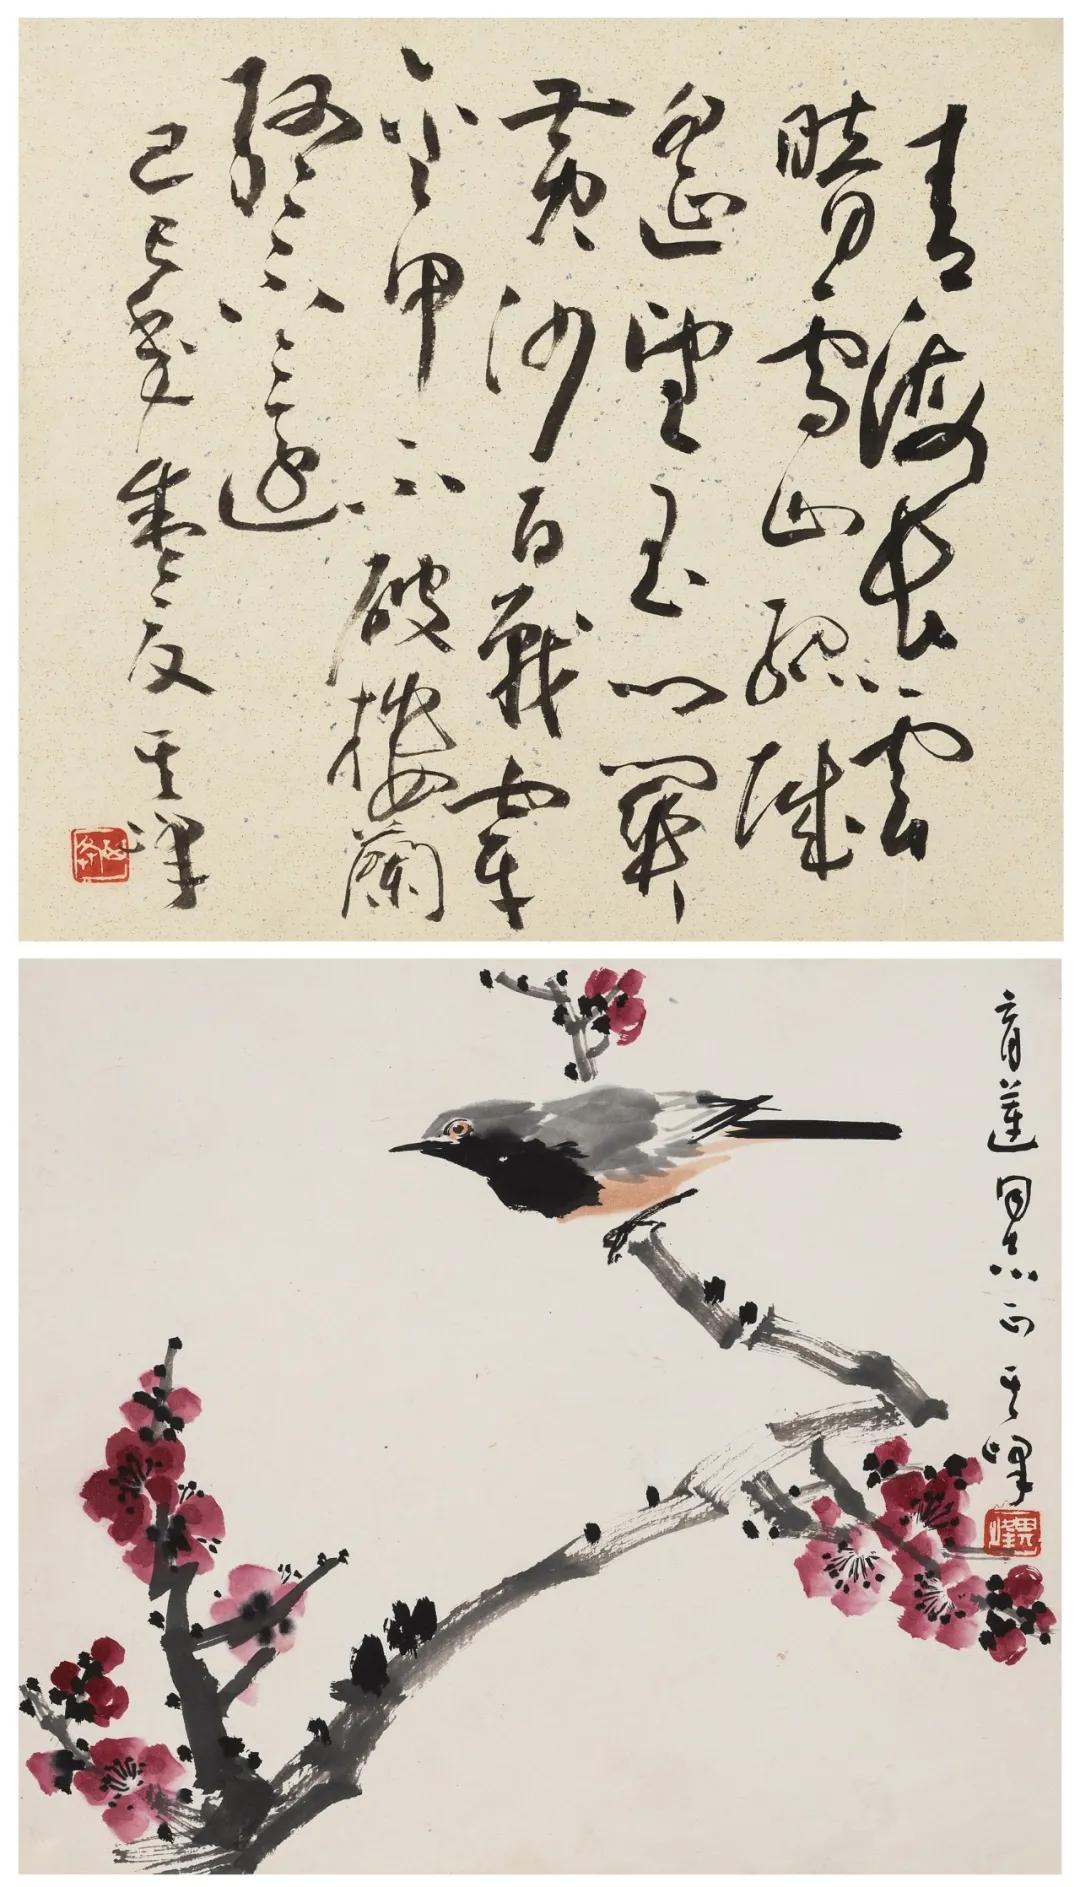 青海長雲
暗雪山孤城
遙望玉門關
黃沙百戰穿
金甲不破樓蘭
終不還
己巳年 其峰
育蓮同志正 其峰